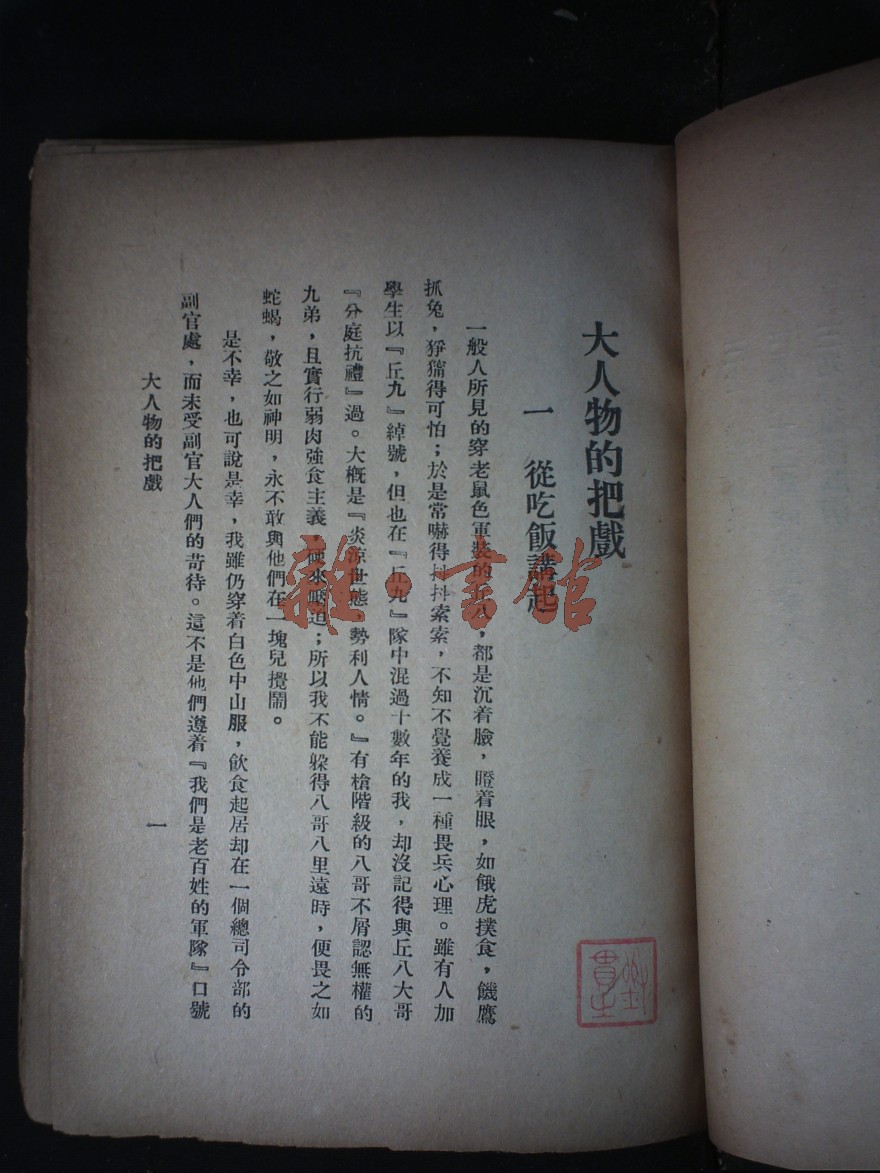 大人物的把戲
一 從吃飯講起
一般人所見的穿老鼠色軍裝的丘八，都是沉着臉，瞪着眼，如餓虎撲食，饑鷹
抓兔，猙獰得可怕；於是常嚇得抖抖索索，不知不覺養成一種畏兵心理。雖有人加
學生以『丘九』綽號，但也在『丘九』隊中混過十數年的我，却沒記得與丘八大哥
『分庭抗禮』過。大概是『炎涼世態，勢利人情。』有槍階級的八哥不屑認無權的
九弟，且實行弱肉強食主義，便來壓迫；所以我不能躲得八哥八里遠時，便畏之如
蛇蝎，敬之如神明，永不敢與他們在一塊兒攪鬧。
是不幸，也可說是幸，我雖仍穿着白色中山服，飲食起居却在一個總司令部的
副官處，而未受副官大人們的苛待。這不是他們遵着『我們是老百姓的軍隊』口號
大人物的把戲
一
雜·書館